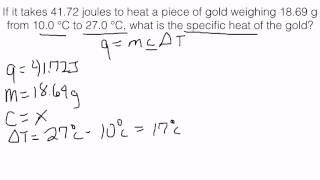 If it takes 41.72 joules to heat a piece of gold weighing 18.69 g
from 10.0 °C to 27.0 °C, what is the specific heat of the gold?
q = mc∆T
q = 41.72J
m = 18.69g
C = x
∆T = 27°c - 10°c = 17°c